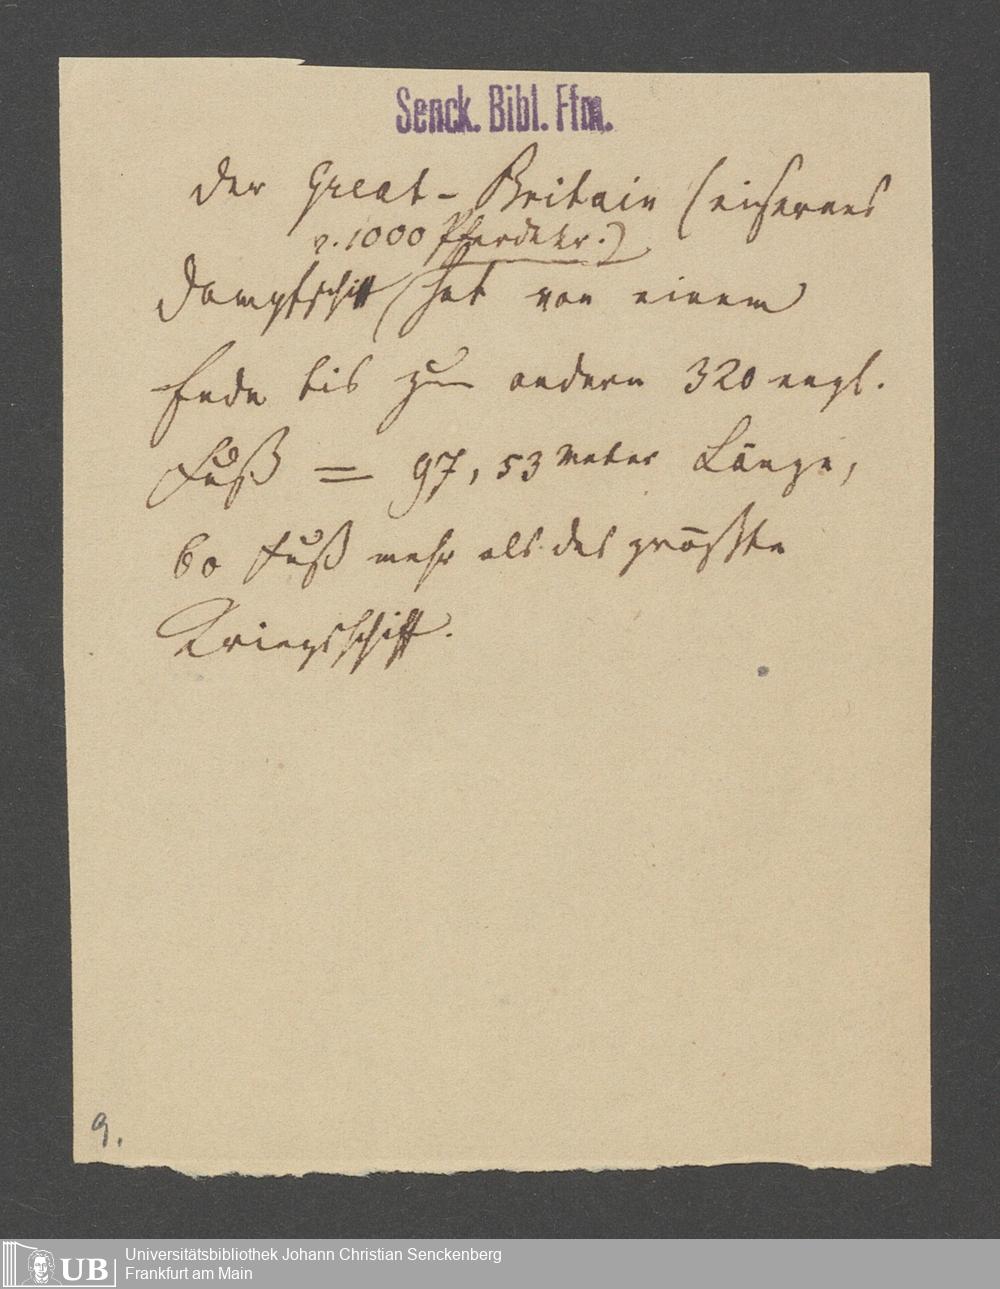 Senck. Bibl. Ffm.
Der Great-Britain (eisernes
v. 1000 Pferdekr.)
Dampfschiff (hat von einem
Ende bis zum andern 320 engl.
Fuß = 97,53 Meter Länge,
60 Fuß mehr als das größte
Kriegsschiff.
9.
UB
Universitätsbibliothek Johann Christian Senckenberg
Frankfurt am Main